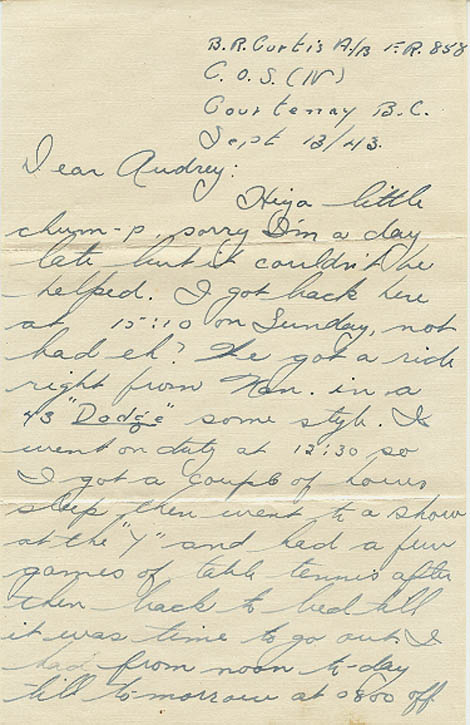 B.R. Curtis A/B F.R. 858
C.O.S. (N)
Courtenay B.C.
Sept 13/43.
Dear Audrey:
Hiya little
chum-p, sorry I'm a day
late but it couldn't be
helped. I got back here
at 15:10 on Sunday, not
bad eh? We got a ride
right from Nan. in a
43 "Dodge" some style. I
went on duty at 12:30 so
I got a couple of hours
sleep then went to a show
at the "Y" and had a few
games of table tennis after
then back to bed till
it was time to go out. I
had from noon to-day
till tomorrow at 0800 off